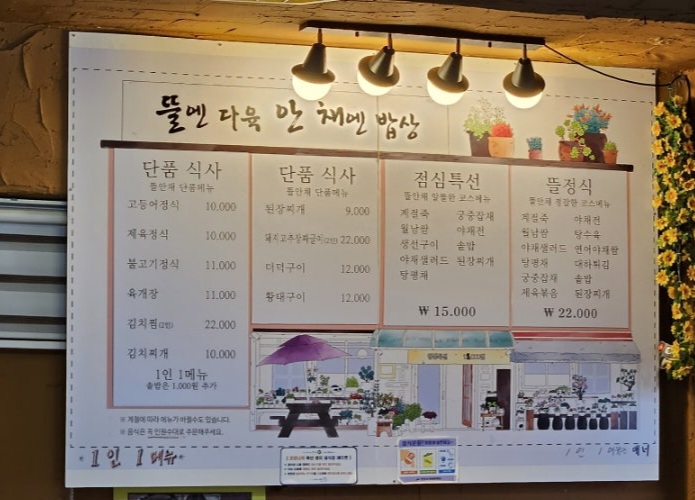 뜰엔 다육 안 채엔 밥상
단품 식사
뜰안채 단품메뉴
고등어정식 10,000
제육정식 10,000
불고기정식 11,000
육개장 11,000
김치찜(2인) 22,000
김치찌개 10,000
1인 1메뉴
솥밥은 1,000원 추가
단품 식사
뜰안채 단품메뉴
된장찌개 9,000
돼지고추장짜글이(2인) 22,000
더덕구이 12,000
황태구이 12,000
점심특선
뜰안채 알뜰한 코스메뉴
계절죽 궁중잡채
월남쌈 야채전
생선구이 솥밥
야채샐러드 된장찌개
탕평채
₩ 15,000
뜰정식
뜰안채 정갈한 코스메뉴
계절죽 야채전
월남쌈 탕수육
야채샐러드 연어야채쌈
탕평채 대하튀김
궁중잡채 솥밥
제육볶음 된장찌개
₩ 22,000
※ 계절에 따라 메뉴가 바뀔수도 있습니다.
※ 음식은 꼭 인원수대로 주문해주세요.
1인 1메뉴
1인 1